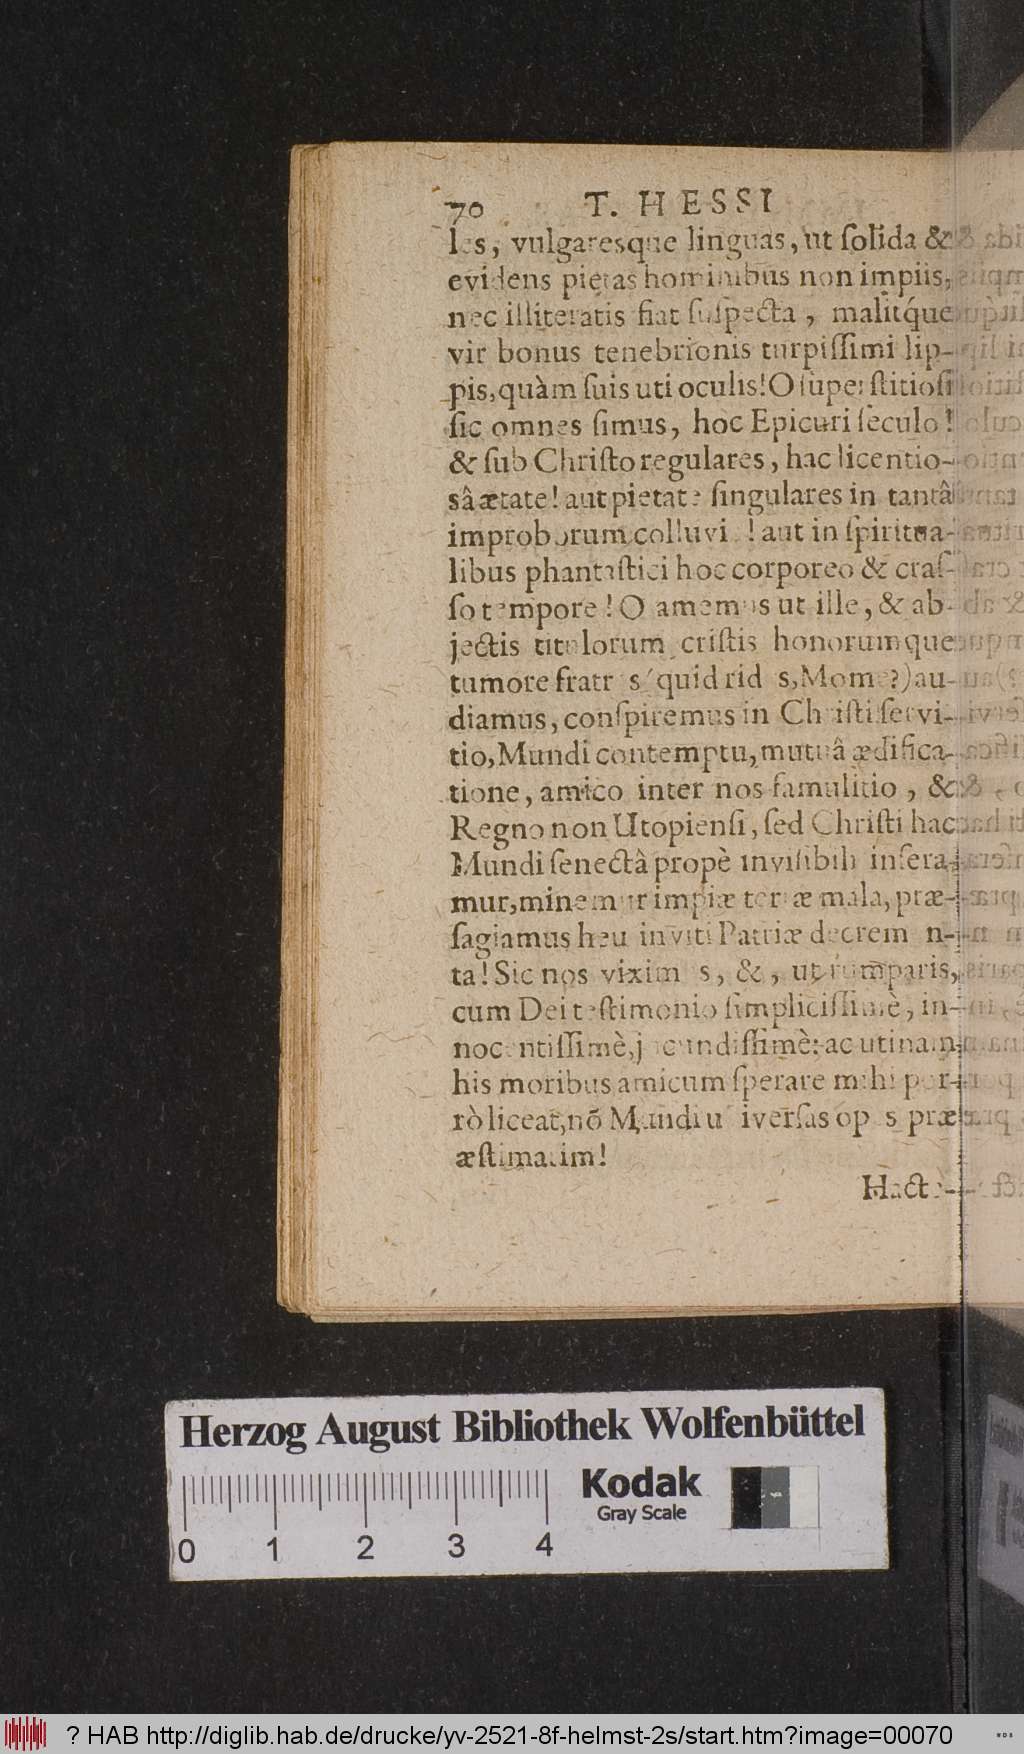 70 T. HESSI
les, vulgaresque linguas, ut ſolida &
evidens pietas hominibus non impiis,
nec illiteratis fiat ſuſpecta, malitq́ue
vir bonus tenebrionis turpiſſimi lip-
pis, quàm ſuis uti oculis! O ſuperſtitioſi
ſic omnes ſimus, hoc Epicuri ſeculo!
& ſub Chriſto regulares, hac licentio-
sâ ætate! aut pietate ſingulares in tantâ
improborum colluvi ! aut in ſpiritua-
libus phantaſtici hoc corporeo & craſ-
ſo tempore! O amemus ut ille, & ab-
jectis titulorum criſtis honorumque
tumore fratr s (quid rid s, Mome?) au-
diamus, conſpiremus in Chriſti ſervi-
tio, Mundi contemptu, mutuâ ædifica-
tione, amico inter nos famulitio, &
Regno non Utopienſi, ſed Chriſti hac
Mundi ſenectâ propè inviſibili inſera-
mur, minemur impiæ terræ mala, præ-
ſagiamus heu inviti Patriæ decrem n-
ta! Sic nos vixim s, &, ut rumparis,
cum Dei teſtimonio ſimpliciſſimè, in-
nocentiſſimè, jucundiſſimè: ac utinam
his moribus amicum ſperare mihi por-
rò liceat, nõ Mundi u iverſas op s præ
æſtimatim!
Hacte-
Herzog August Bibliothek Wolfenbüttel
Kodak
Gray Scale
0 1 2 3 4
? HAB http://diglib.hab.de/drucke/yv-2521-8f-helmst-2s/start.htm?image=00070